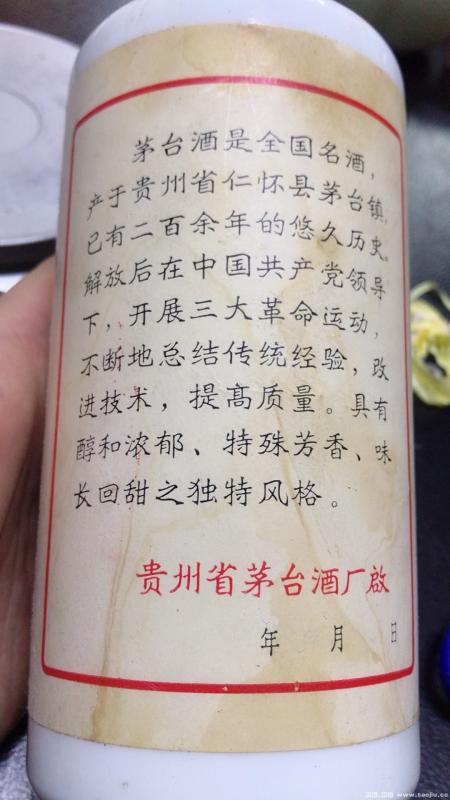 茅台酒是全国名酒，
产于贵州省仁怀县茅台镇，
已有二百余年的悠久历史。
解放后在中国共产党领导
下，开展三大革命运动，
不断地总结传统经验，改
进技术，提高质量。具有
醇和浓郁、特殊芳香、味
长回甜之独特风格。
贵州省茅台酒厂啟
年 月 日
www.taojiu.cc